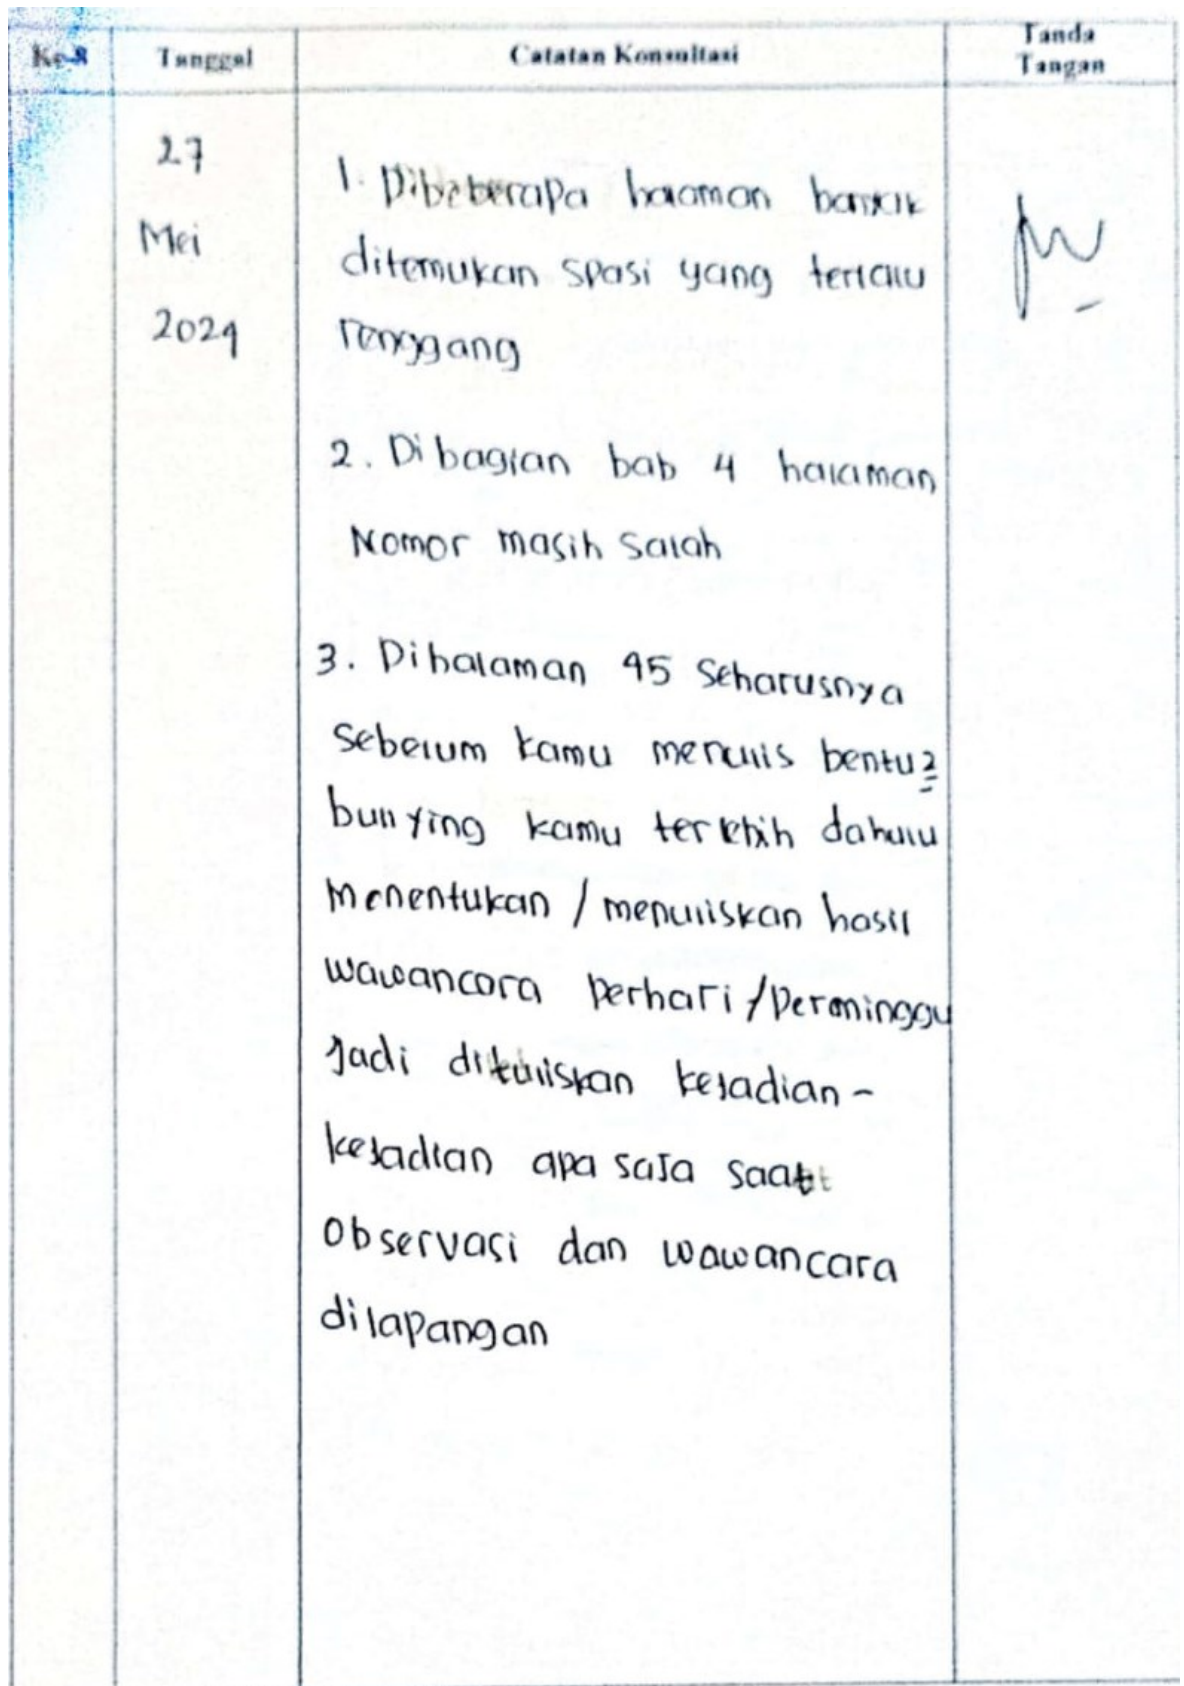 Ke-8
Tanggal
Catatan Konsultasi
Tanda
Tangan
27
Mei
2024
1. Dibeberapa halaman banyak
ditemukan spasi yang terlalu
renggang
2. Dibagian bab 4 halaman
Nomor masih salah
3. Dihalaman 45 seharusnya
sebelum kamu menulis bentu2
bullying kamu terlebih dahulu
menentukan / menuliskan hasil
wawancara perhari/perminggu
Jadi dituliskan kejadian-
kejadian apa saja saat
observasi dan wawancara
dilapangan